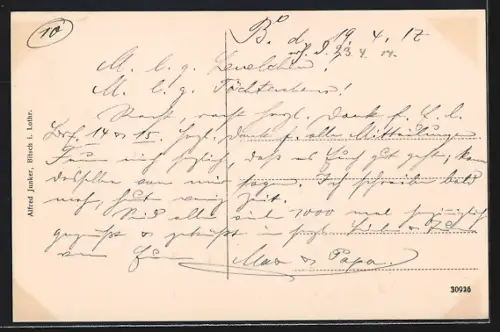 10
B. d. 19. 4. 17
23. 4. 17.
M. l. g.
M. l. g. Töchterchens!
herzl. Dank f. E. l.
Brf. 14 & 15. herzl. Dank f. alle Mitteilungen
Freue mich herzlich, dass es Euch gut geht, kann
dasselbe von mir sagen. Ich schreibe bald
mehr, hab wenig Zeit.
Seid alle viel 1000 mal herzinniglich
gegrüßt & geküsst in herzl. Liebe &
von Eurem Max & Papa.
Alfred Junker, Bitsch i. Lothr.
30926